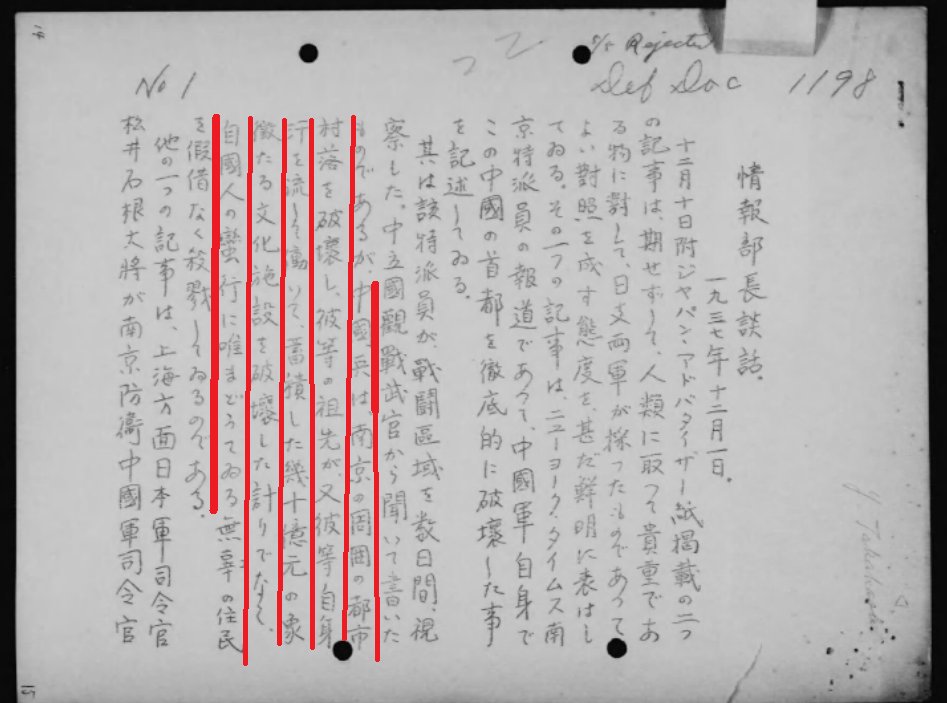 5/5 Rejected
Def Doc 1198
No 1
情報部長談話.
一九三七年十二月一日.
十二月十日附ジヤパン.アドバタイザー紙揭載の二つ
の記事は、期せずして、人類に取つて貴重であ
る物に對して、日支兩軍が採つたものであつて
よい對照を成す態度を、甚だ鮮明に表はし
てゐる。その一つの記事は、ニユーヨーク.タイムス南
京特派員の報道であつて、中國軍自身で
この中國の首都を徹底的に破壞した事
を記述してゐる。
其は該特派員が、戰鬪區域を数日間、視
察した、中立國觀戰武官から聞いて書いた
ものであるが、中國兵は、南京の周囲の都市
村落を破壞し、彼等の祖先が、又彼等自身
汗を流して働いて、蓄積した幾十億元の象
徵たる文化施設を破壞した計りでなく、
自國人の蠻行に唯まどうてゐる無辜の住民
を假借なく殺戮してゐるのである.
他の一つの記事は、上海方面日本軍司令官
松井石根大將が南京防衞中國軍司令官